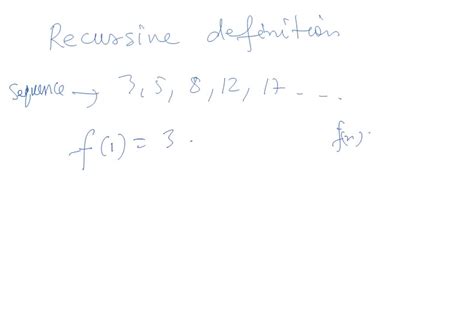 Recursive definition
Sequence → 3, 5, 8, 12, 17 - - -
f(1) = 3 .
f(n).